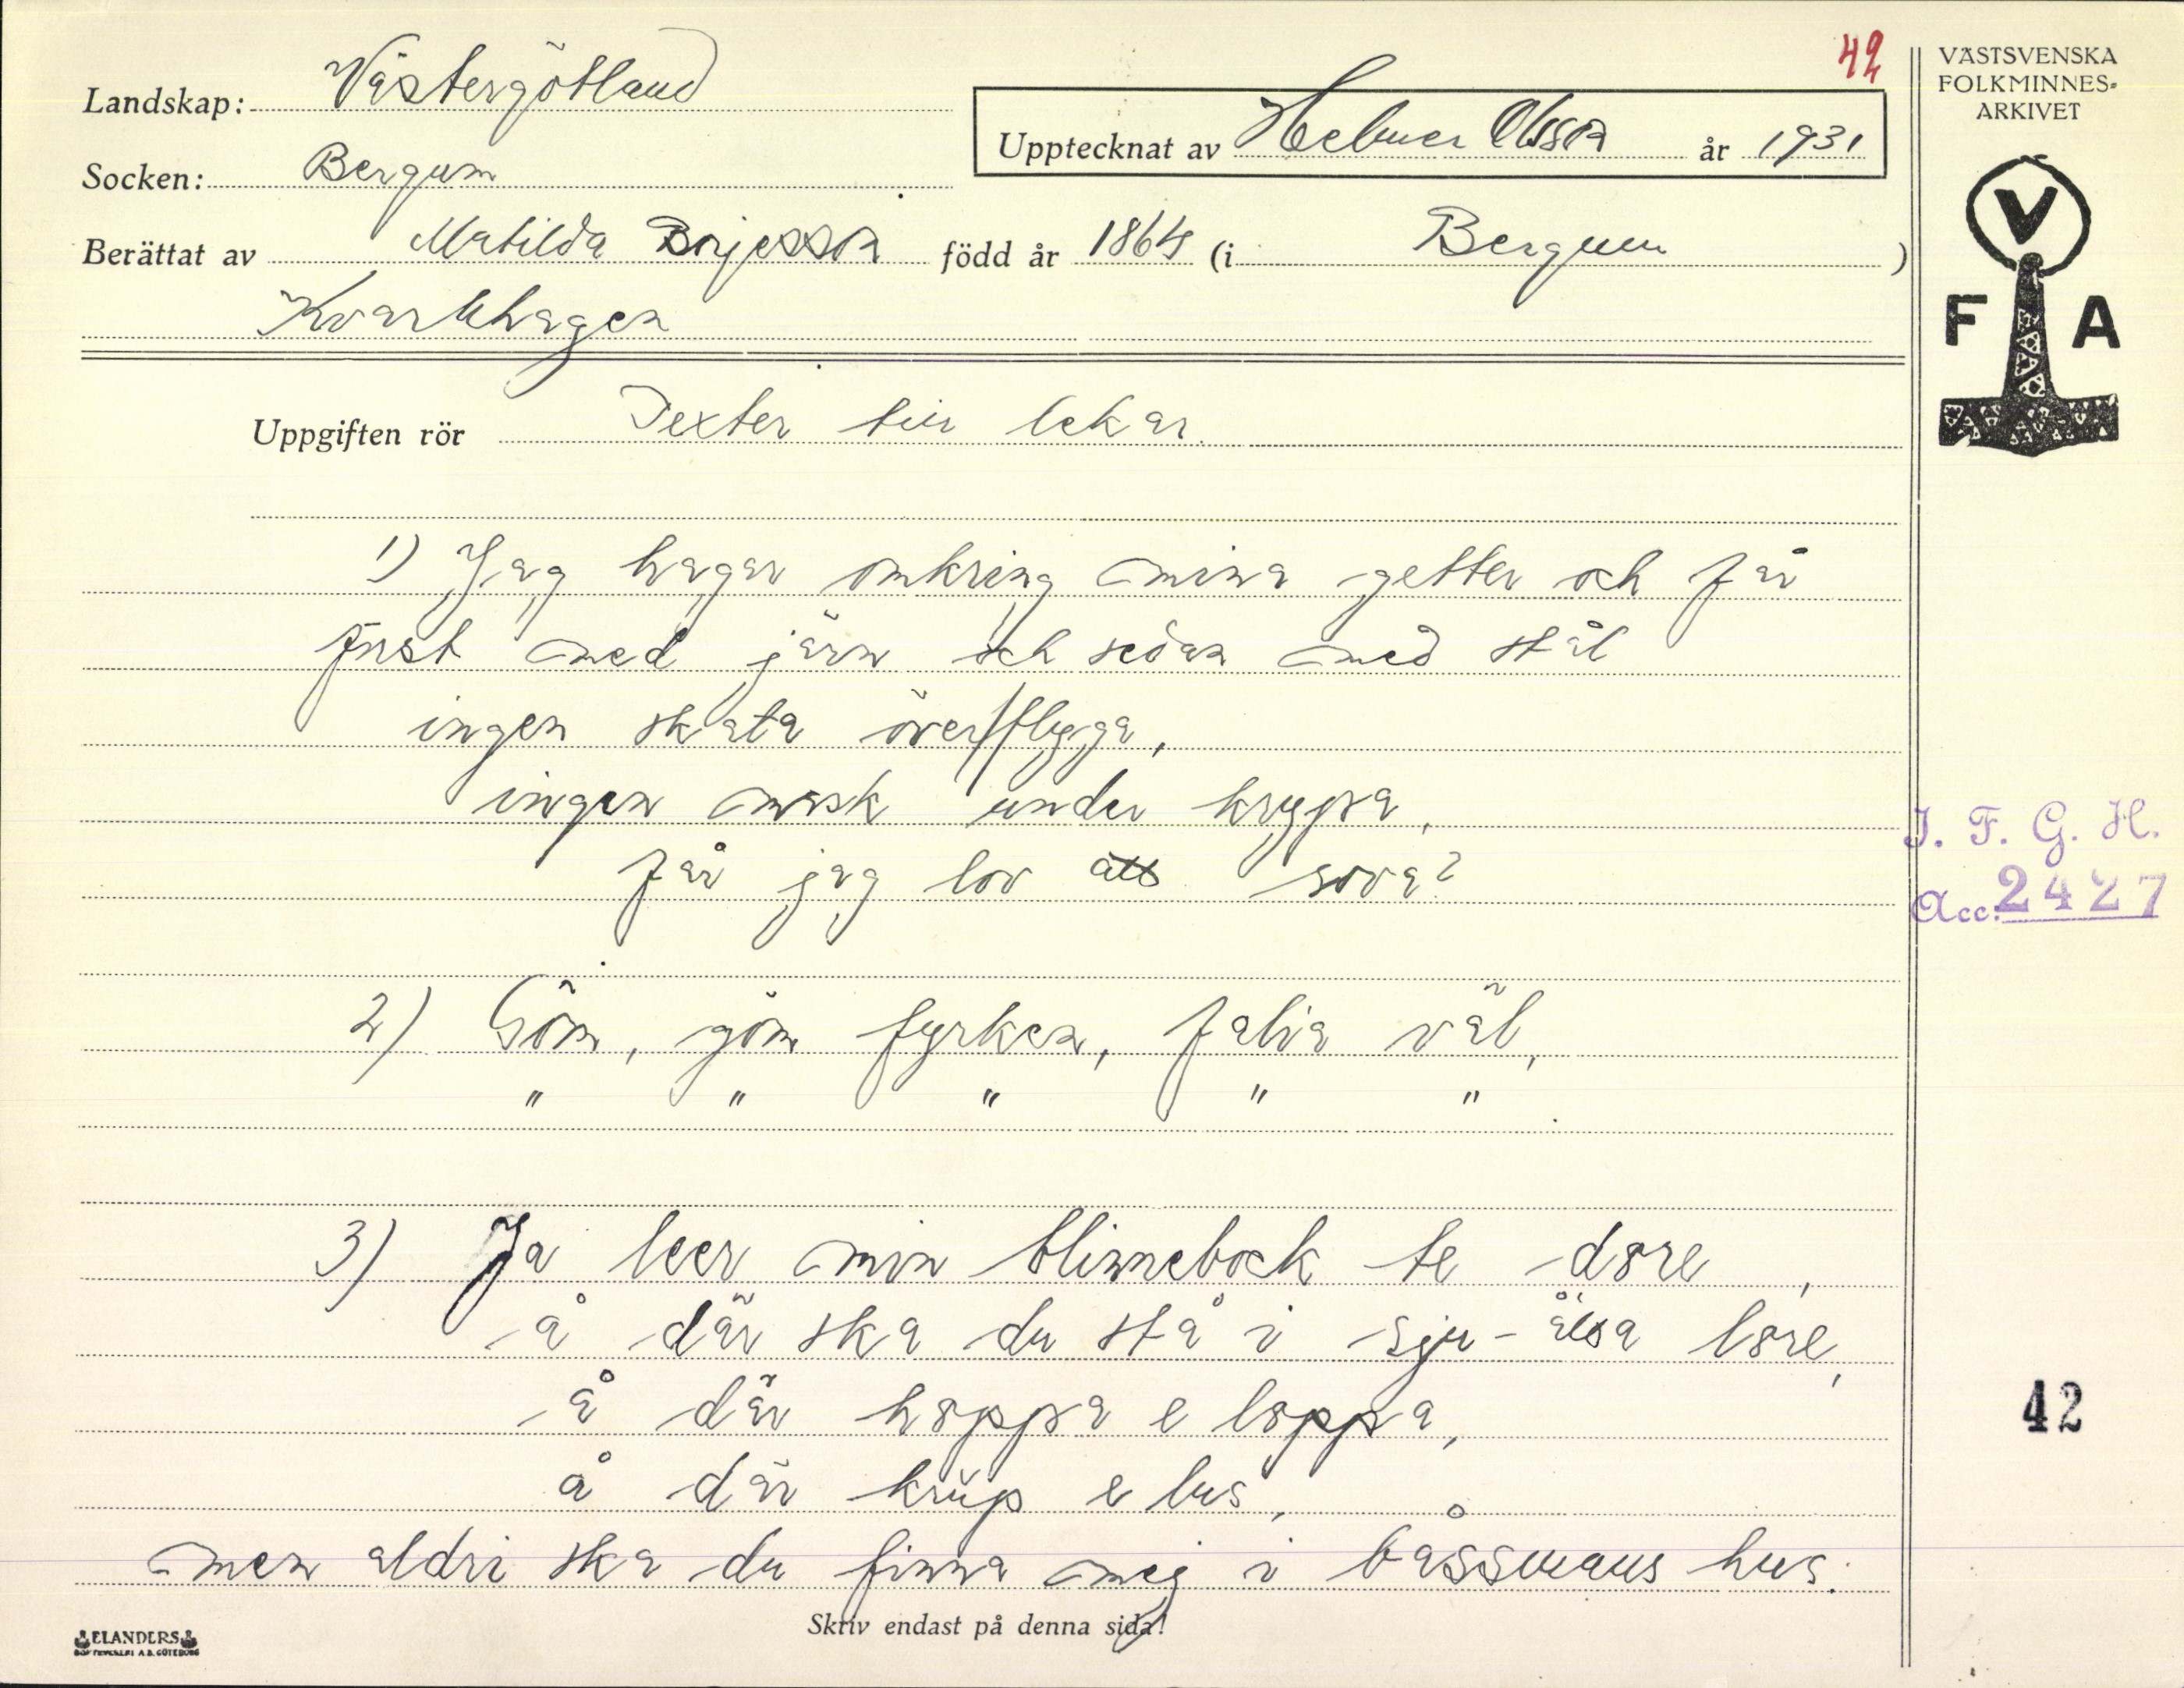 42
VÄSTSVENSKA
FOLKMINNES-
ARKIVET
Landskap: Västergötland
Upptecknat av Helmer Olsson år 1931
Socken: Bergum
Berättat av Matilda Börjesson född år 1864 (i Bergum )
Kvarnhagen
V
F A
Uppgiften rör Texter till lekar.
1) Jag hagar omkring mina getter och får
först med järn och sedan med stål
ingen skata över/flyga,
ingen mask under krypa,
får jag lov att sova?
I. F. G. H.
Acc. 2427
2) Göm, göm fyrken, falia väl,
" " " " " .
3) Ja leer min blinnebock te döre,
å där ska du stå i sju-älsa löre,
å där hoppa e loppa,
å där krüp e lus,
men aldri ska du finna mej i båssmans hus.
42
Skriv endast på denna sida!
ELANDERS
BOKTRYCKERI A.B. GÖTEBORG